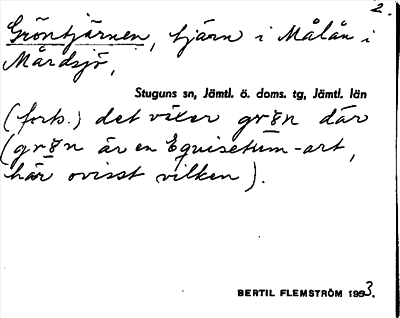 2.
Gröntjärnen, tjärn i Målån i
Mårdsjö,
Stuguns sn, Jämtl. ö. doms. tg, Jämtl. län
(forts.) det växer grȣn där
(grȣn är en Equisetum-art,
här ovisst vilken).
BERTIL FLEMSTRÖM 1953.